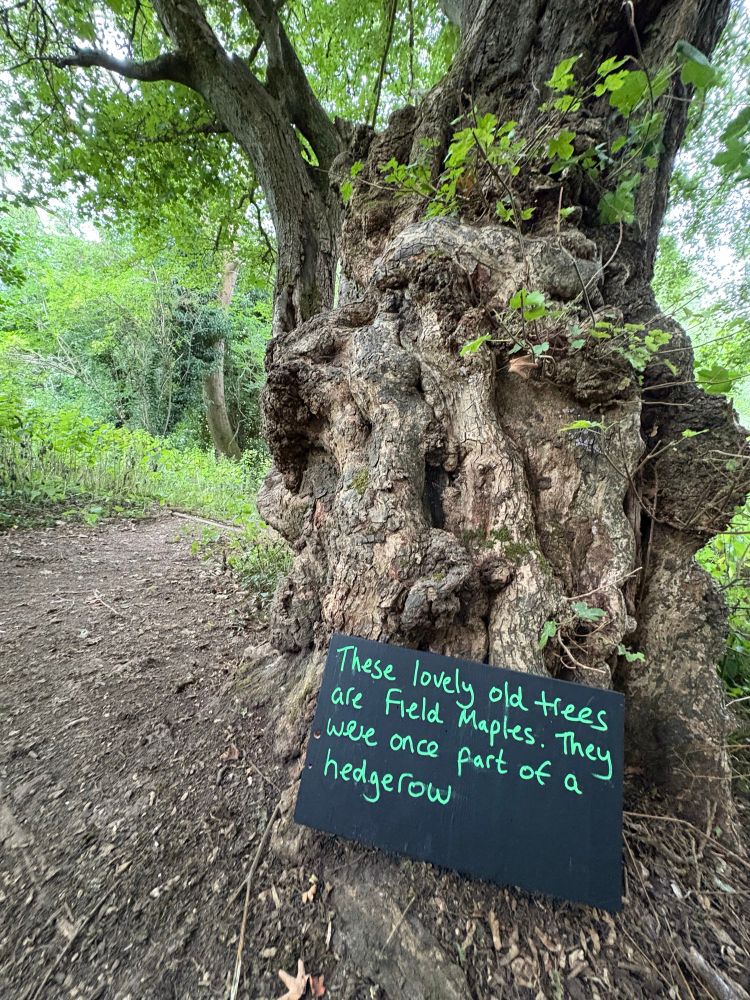 These lovely old trees
are Field Maples. They
were once part of a
hedgerow